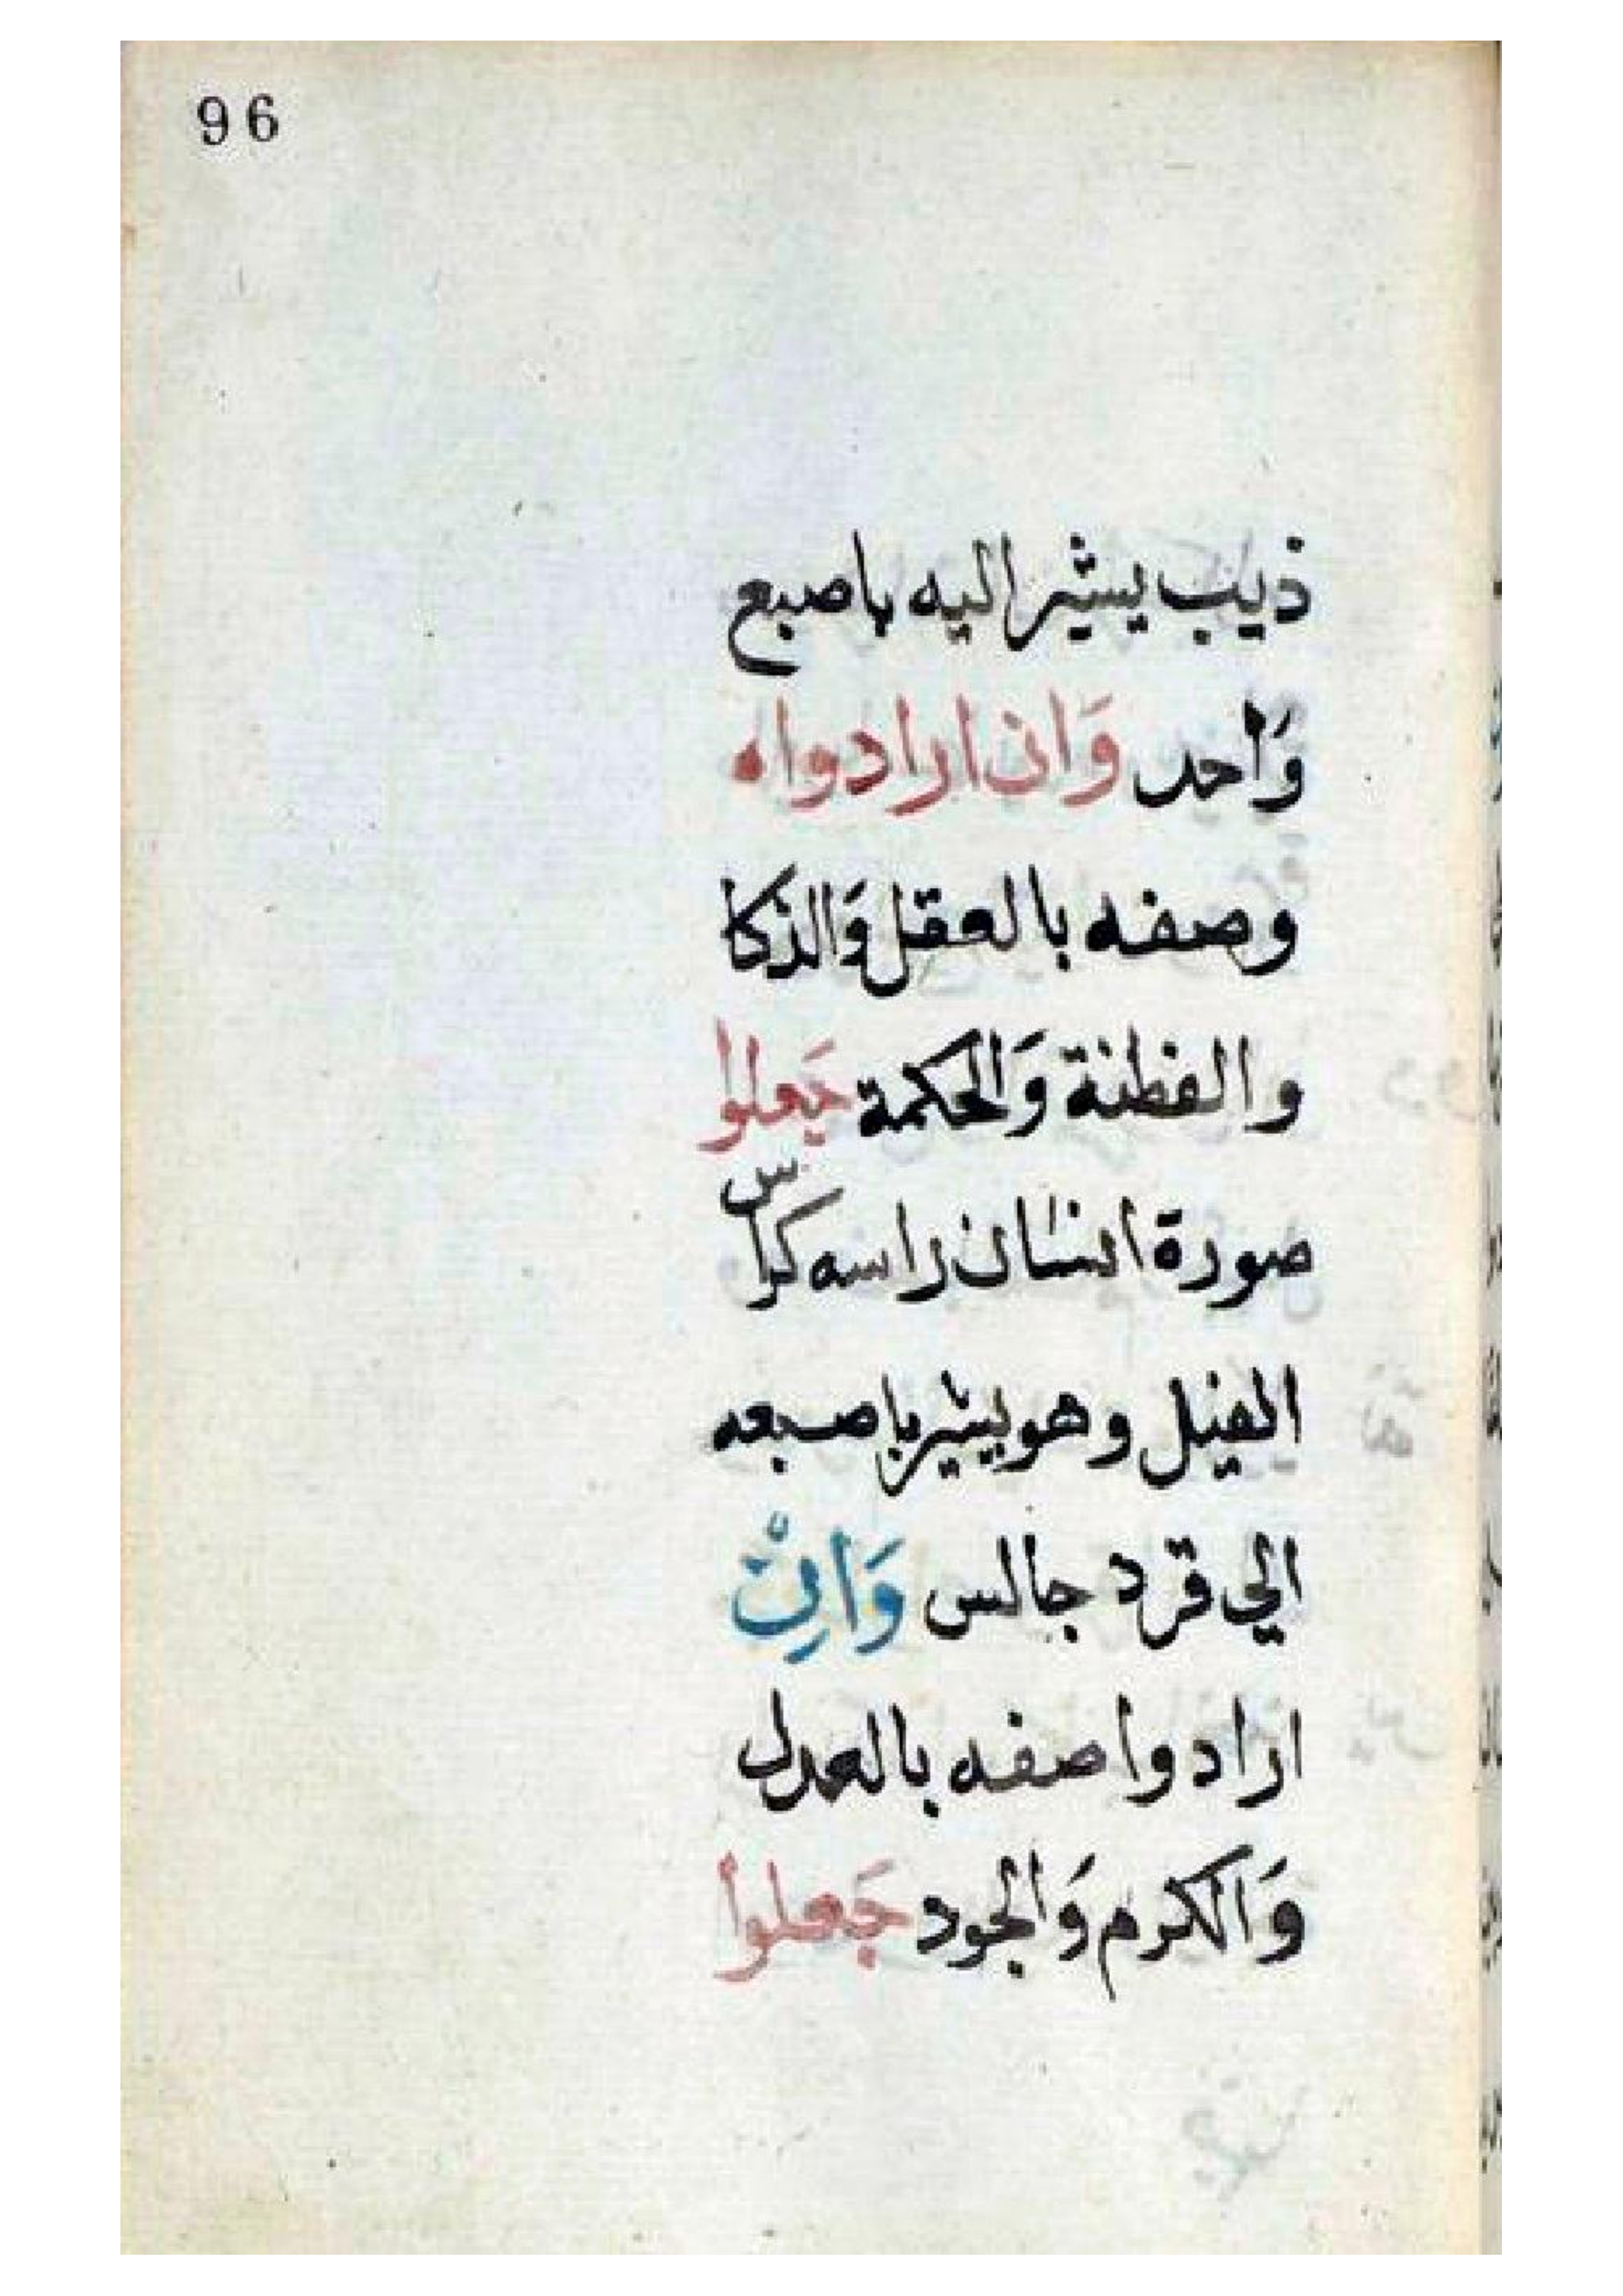 96
ذيب يشير اليه باصبع
وَاحد وَان ارادوا ه
وصفه بالعقل وَالذكا
والفطنة وَالحكمة جَعلوا
صورة انسان راسه كراس
الفيل وهو يشير باصبعه
الي قرد جالس وَاِنْ
ارادوا صفه بالعدل
وَالكرم وَالجود جَعلوا